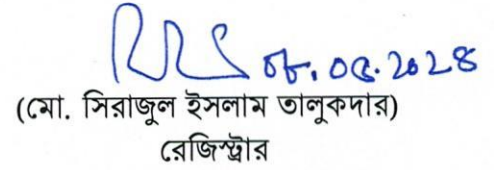 ০৮.০৫.২০২৪
(মো. সিরাজুল ইসলাম তালুকদার)
রেজিস্ট্রার